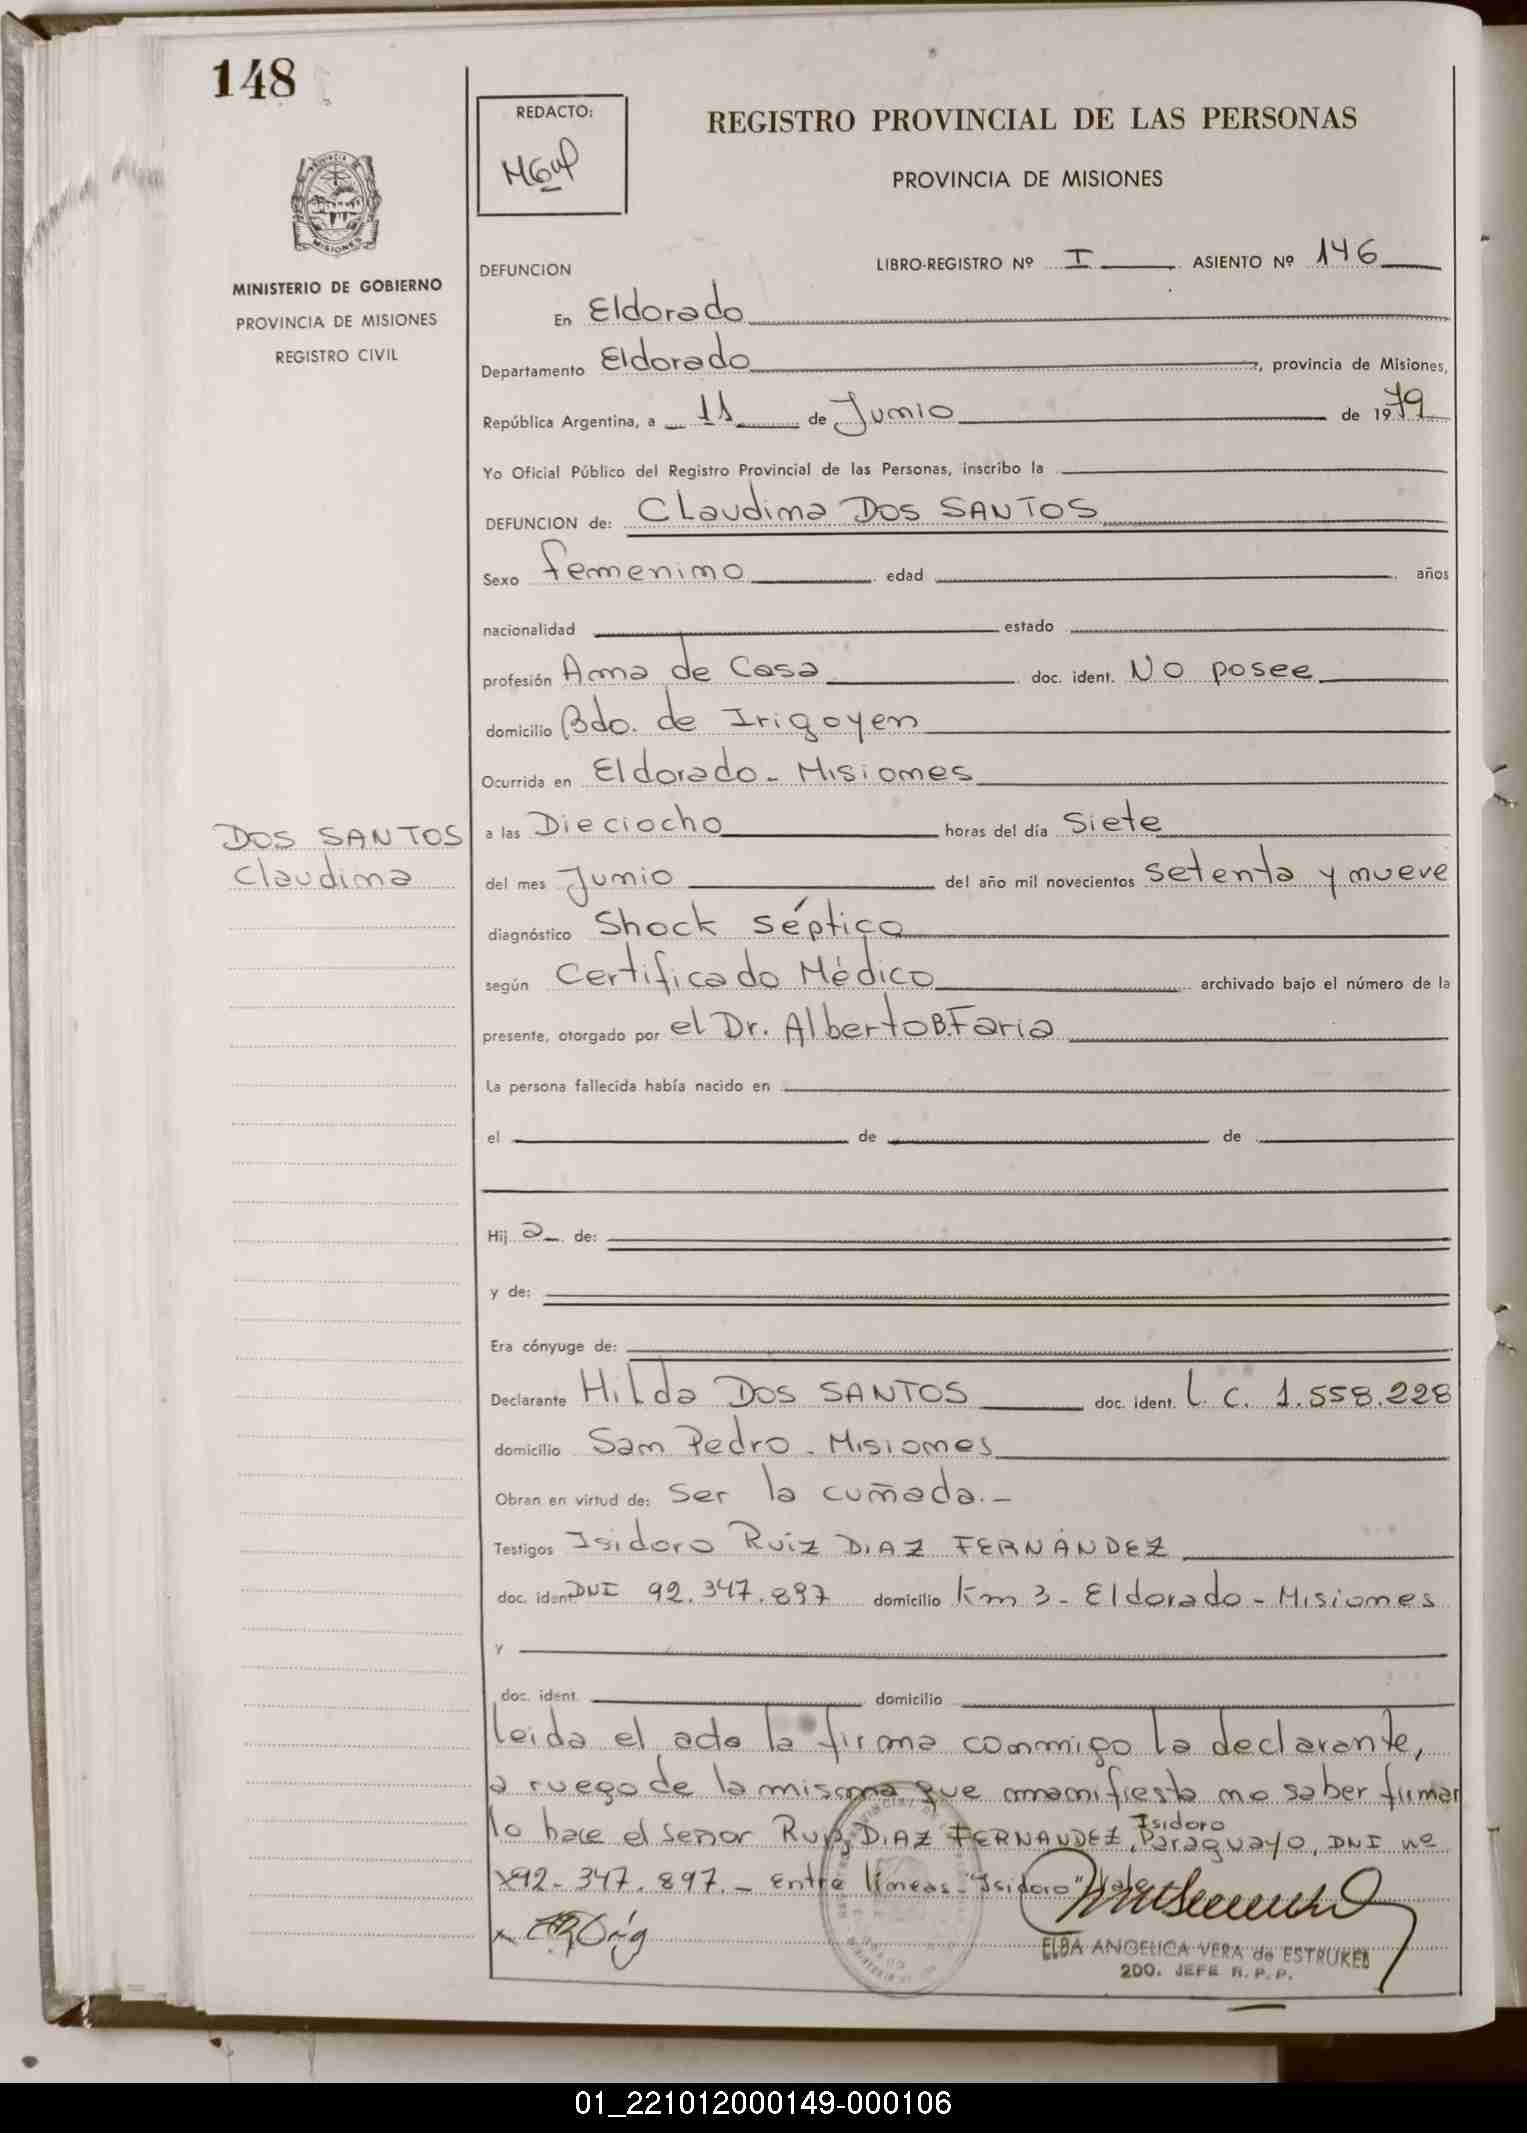 148
REDACTO:
REGISTRO PROVINCIAL DE LAS PERSONAS
PROVINCIA DE MISIONES
MINISTERIO DE GOBIERNO
PROVINCIA DE MISIONES
REGISTRO CIVIL
DEFUNCION LIBRO-REGISTRO Nº I ASIENTO Nº 146
En Eldorado
Departamento Eldorado, provincia de Misiones,
República Argentina, a 11 de Junio de 1979
Yo Oficial Público del Registro Provincial de las Personas, inscribo la
DEFUNCION de: Claudina DOS SANTOS
Sexo femenino edad años
nacionalidad estado
profesión Ama de Casa doc. ident. No posee
domicilio Bdo. de Irigoyen
Ocurrida en Eldorado - Misiones
DOS SANTOS
Claudina
a las Dieciocho horas del día Siete
del mes Junio del año mil novecientos setenta y nueve
diagnóstico Shock séptico
según Certificado Médico archivado bajo el número de la
presente, otorgado por el Dr. Alberto B. Faria
La persona fallecida había nacido en
el de de
Hij a de:
y de:
Era cónyuge de:
Declarante Hilda DOS SANTOS doc. ident. L. C. 1.558.228
domicilio San Pedro - Misiones
Obran en virtud de: Ser la cuñada.-
Testigos Isidoro Ruíz DIAZ FERNÁNDEZ
doc. ident DNI 92.347.897 domicilio Km 3 - Eldorado - Misiones
y
doc. ident. domicilio
leida el acta la firma conmigo la declarante,
a ruego de la misma que manifiesta no saber firmar
lo hace el señor RUIZ DIAZ FERNANDEZ, Isidoro Paraguayo, DNI nº
92-347.897.- Entre líneas-"Isidoro" Vale
ELBA ANGELICA VERA de ESTRUKEL
2DO. JEFE R. P. P.
01_221012000149-000106